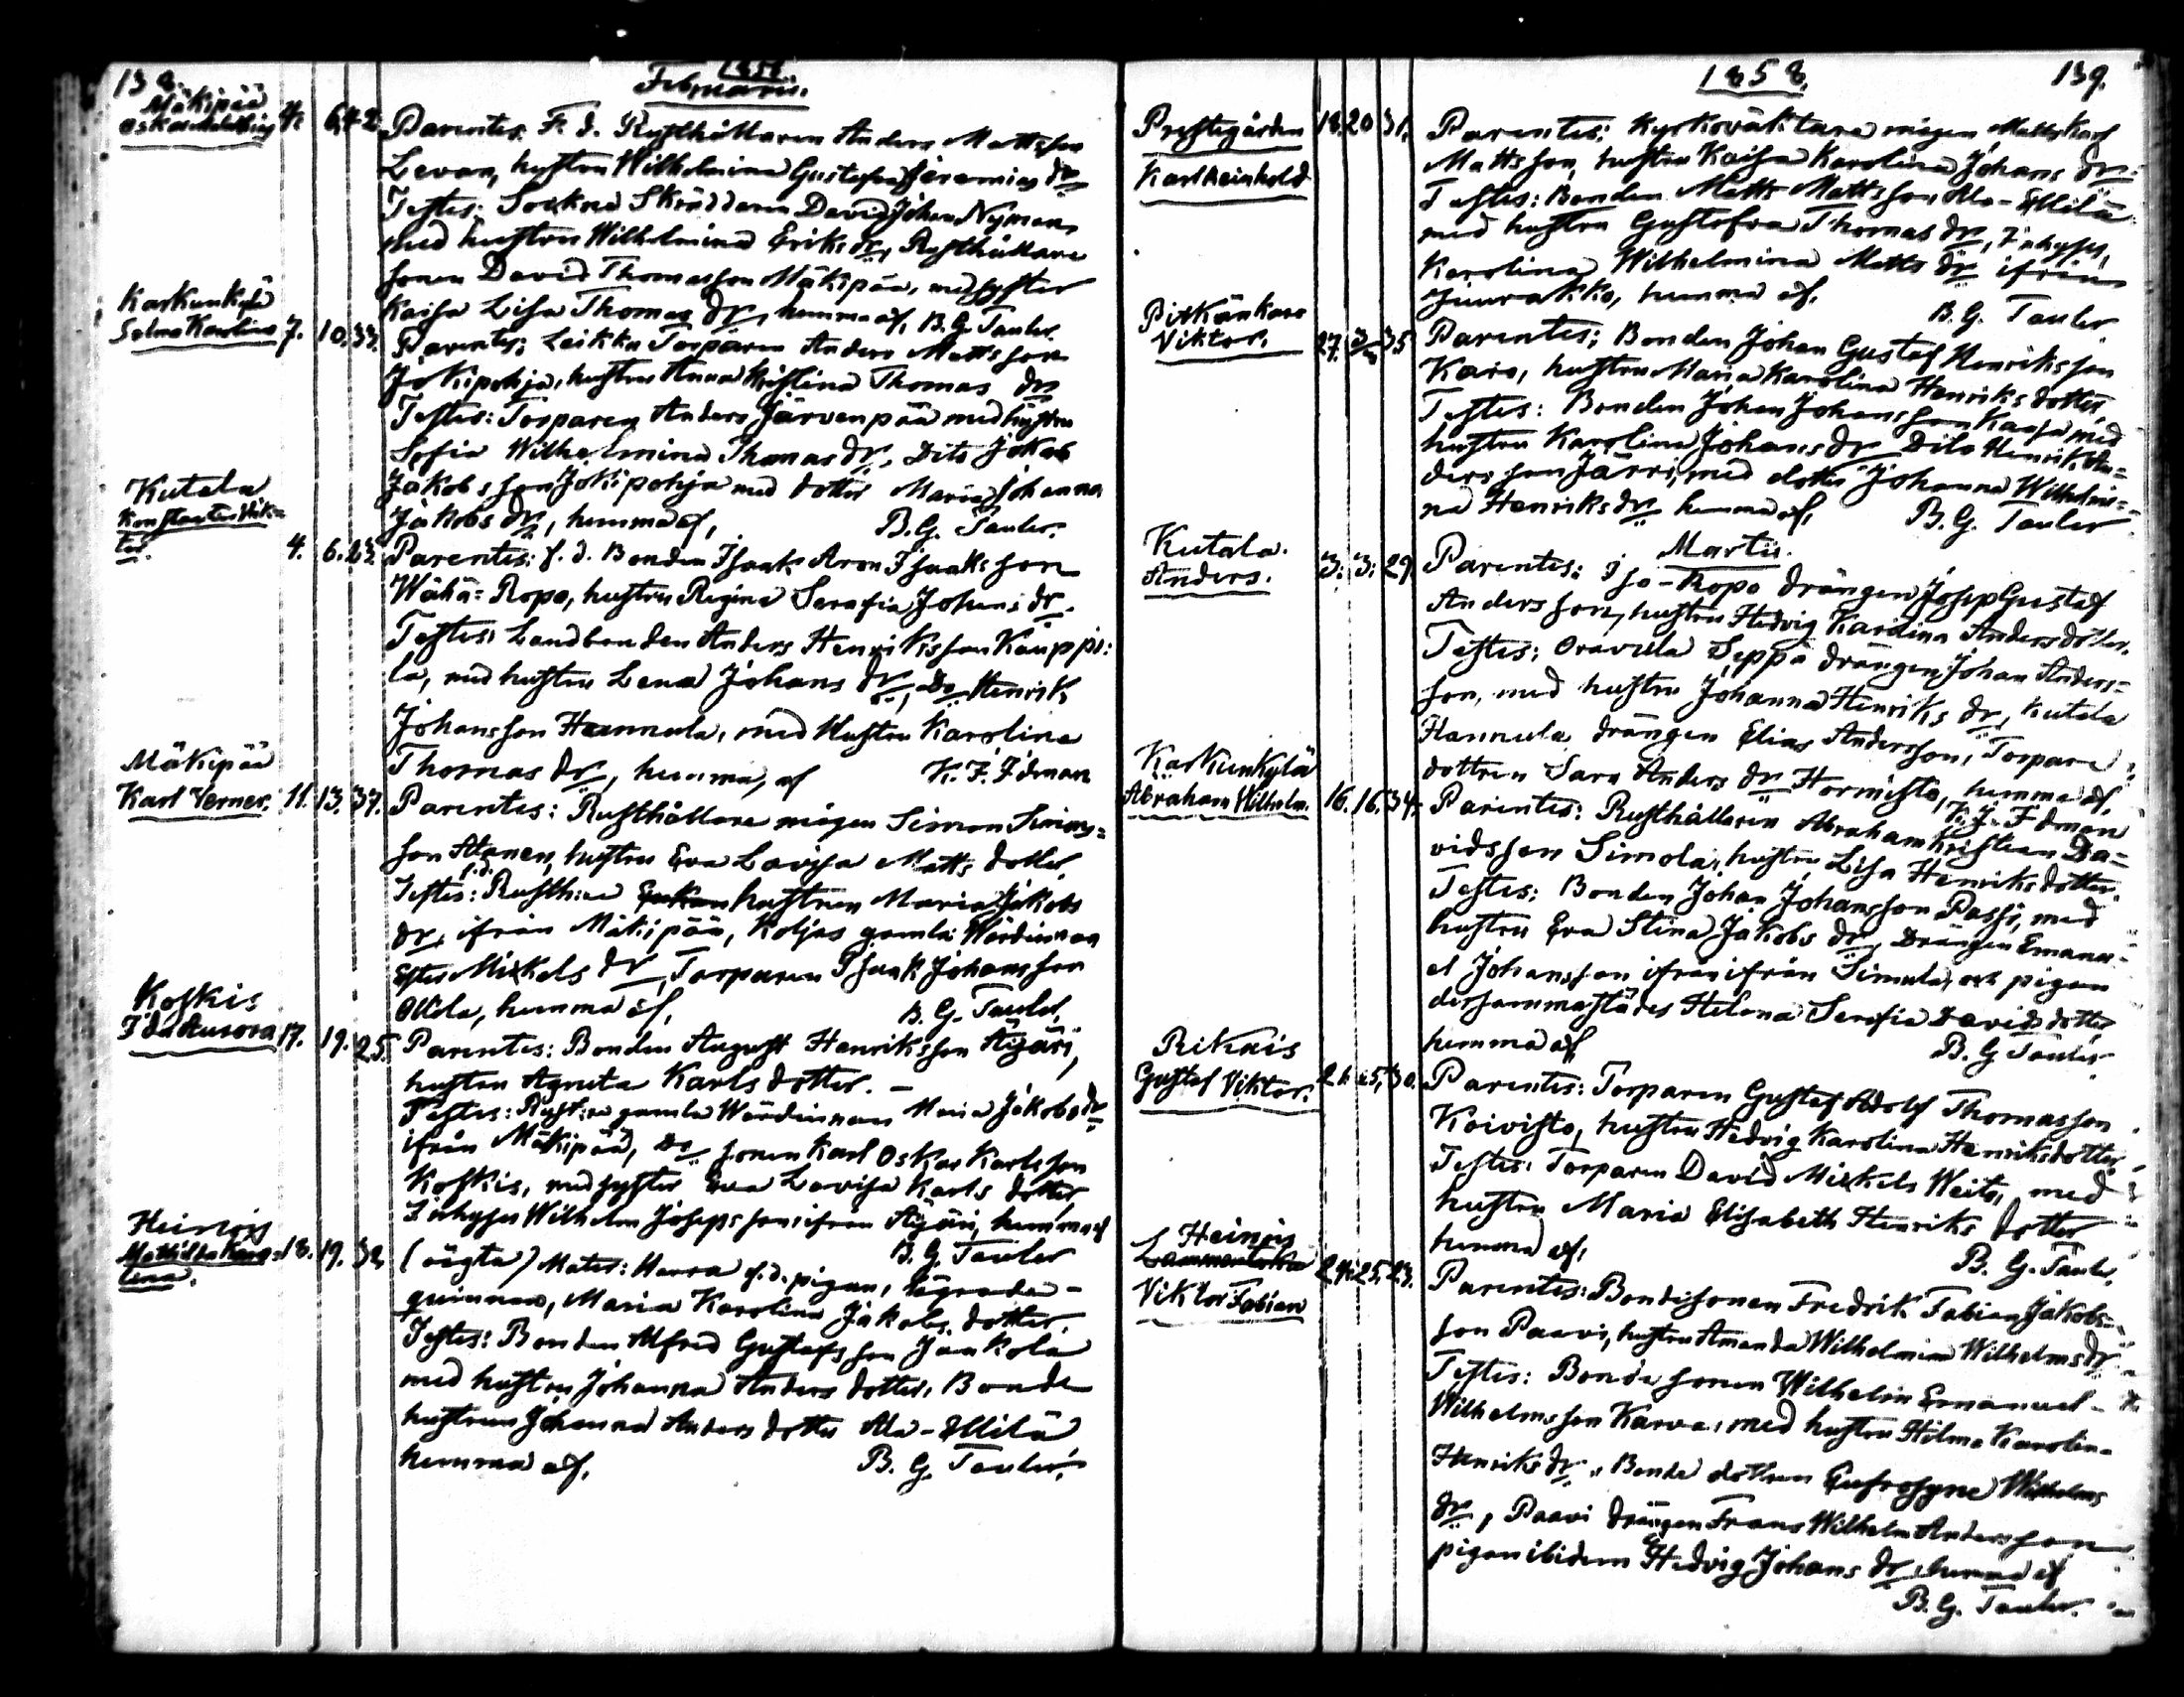 138.
1858.
Februarii.
Mäkipää
Oskar Mathias 4. 6. 42.
Parentes: F. d. Rusthållaren Anders Mattsson
Levan, hustru Wilhelmina Gustafva Jeremias dr
Testes: Sockne Skräddaren David Johan Nyman,
med hustru Wilhelmina Eriks dr, Rusthållare
sonen David Thomasson Mäkipää, med syster
Kaisa Lisa Thomas dr, hemma af, B. G. Tauler.
Karkunkylä
Selma Karolina 7. 10. 37.
Parentes: Leikku Torparen Anders Mattsson
Jokipohja, hustru Anna Kristina Thomas dr
Testes: Torparen Anders Järvenpää med hustru
Sofia Wilhelmina Thomas dr, Dito Jakob
Jakobsson Jokipohja med dotter Maria Johanna
Jakobs dr, hemma af, B. G. Tauler.
Kutala
Konstantin Vik-
tor. 4. 6. 23.
Parentes: f. d. Bonden Isaak Aron Isaaksson
Wähä-Ropo, hustru Regina Serafia Johans dr.
Testes: Landbonden Anders Henriksson Kauppi-
la, med hustru Lena Johans dr, Do Henrik
Johansson Hannula, med Hustru Karolina
Thomas dr, hemma af K. F. Idman
Mäkipää
Karl Verner. 11. 13. 37.
Parentes: Rusthållare mågen Simon Simons-
son Atanen, hustru Eva Lovisa Matts dotter,
Testes: f.d. Rusth:re hustrun Maria Jakobs
dr, ifrån Mäkipää, Koljas gamla Wärdinnan
Ester Mickels dr, Torparen Isaak Johansson
Ollila, hemma af, B. G. Tauler.
Koskis
Ida Aurora 17. 19. 25.
Parentes: Bonden August Henriksson Äijäri,
hustru Agneta Karls dotter. –
Testes: Rusth:re gamla Wärdinnan Maria Jakobs dr
ifrån Mäkipää, Do sonen Karl Oskar Karlsson
Koskis, med syster Eva Lovisa Karls dotter
Inhyses Wilhelm Josepsson ifrån Äijäri, hemma af
B. G. Tauler
Heinois
Mathilda Karo-
lina. 18. 19. 32.
(oägta) Mater: Harra f. d. pigan, lägrade-
quinnan, Maria Karolina Jakobs dotter.
Testes: Bonden Alfred Gustafsson Jaakola
med hustru Johanna Anders dotter, Bonde
hustrun Johanna Anders dotter Ala-Ellilä
hemma af, B. G. Tauler.
1858.
139.
Prestegården 18. 20. 31.
Karl Reinhold
Parentes: Kyrkoväktare mågen Matts Karl
Mattsson, hustru Kaisa Karolina Johans dr.
Testes: Bonden Matts Mattsson Ala-Ellilä
med hustru Gustafva Thomas dr, Inhyses
Karolina Wilhelmina Matts dr ifrån
Juurakko, hemma af,
B. G. Tauler
Pitkänkaro
Viktor. 27. 3/3 35
Parentes: Bonden Johan Gustaf Henriksson
Karo, hustru Maria Karolina Henriks dotter,
Testes: Bonden Johan Johansson Kaasa med
hustru Karolina Johans dr Dito Henrik An-
dersson Järri, med dotter Johanna Wilhelmi-
na Henriks dr hemma af,
B. G. Tauler
Martii.
Kutala.
Anders. 3. 3. 29.
Parentes: Iso-Ropo drängen Josep Gustaf
Andersson, hustru Hedvig Karolina Anders dotter.
Testes: Oravula Seppä drängen Johan Anders-
son, med hustru Johanna Henriks dr, Kutala
Hannula drängen Elias Andersson, Torpare
dottren Sara Anders dr Hormisto, hemma af,
K. F. Idman
Karkunkylä
Abraham Wilhelm. 16. 16. 34.
Parentes: Rusthållaren Abraham Kristian Da-
vidsson Simola, hustru Lisa Henriks dotter.
Testes: Bonden Johan Johansson Passi, med
hustru Eva Stina Jakobs dr, Drängen Emanu-
el Johansson ifrån ifrån Simula, och pigan
dersammastädes Helena Serafia Davids dotter
hemma af, B. G. Tauler.
Riknis
Gustaf Viktor. 21. 25. 30.
Parentes: Torparen Gustaf Adolf Thomasson
Koivisto, hustru Hedvig Karolina Henriksdotter,
Testes: Torparen David Mickels Weito, med
hustru Maria Elisabeth Henriks dotter
hemma af,
B. G. Tauler.
Heinois
Viktor Fabian 24. 25. 23.
Parentes: Bondesonen Fredrik Fabian Jakobs-
son Paavi, hustru Amanda Wilhelmina Wilhelms dr.
Testes: Bonde sonen Wilhelm Emanuel
Wilhelmsson Karva, med hustru Hilma Karolina
Henriks dr, Bonde dottren Eufrosyne Wilhelms
dr, Paavi drängen Frans Wilhelm Andersson
pigan ibidem Hedvig Johans dr, hemma af
B. G. Tauler.